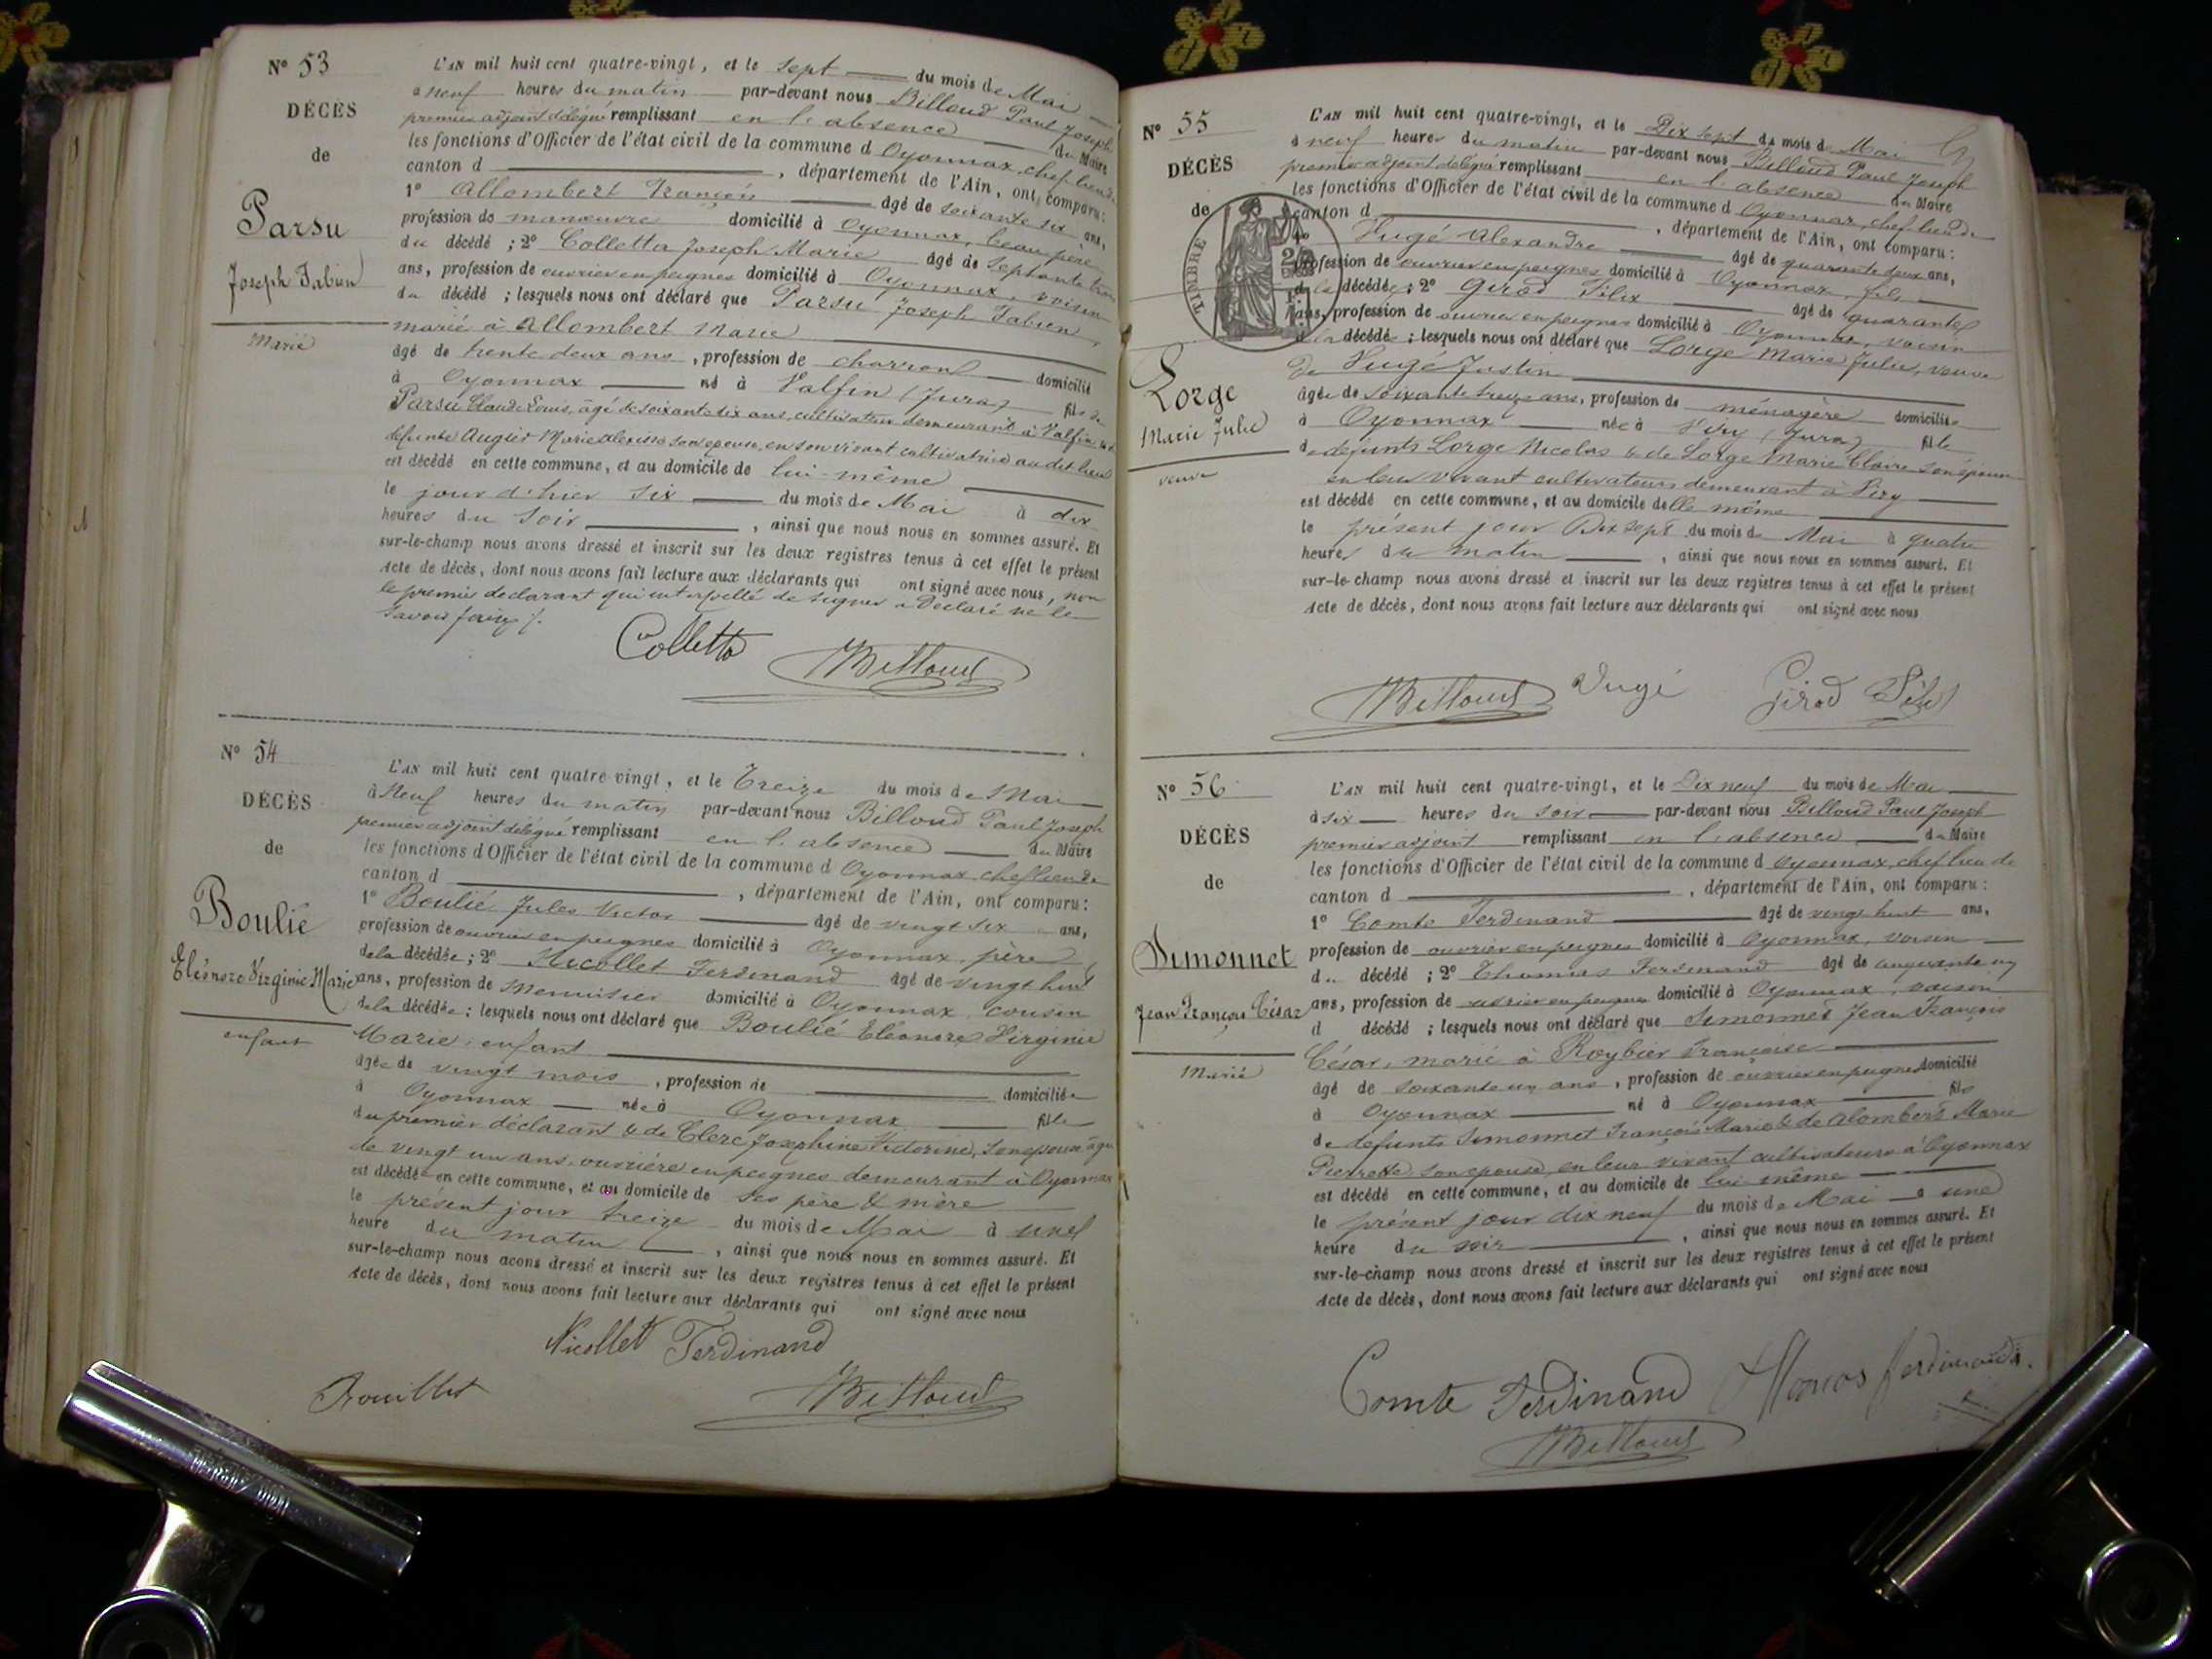 N° 53
DÉCÈS
de
Parsu
Joseph Fabien
Marié
L'AN mil huit cent quatre-vingt, et le sept du mois de Mai
à neuf heures du matin par-devant nous Billoud Paul Joseph
premier adjoint délégué remplissant en l'absence du Maire
les fonctions d'Officier de l'état civil de la commune d Oyonnax, chef lieu de
canton d , département de l'Ain, ont comparu:
1° Allombert François âgé de soixante six ans,
profession de manoeuvre domicilié à Oyonnax, beau père
du décédé ; 2° Colletta Joseph Marie âgé de septante trois
ans, profession de ouvrier en peignes domicilié à Oyonnax, voisin
du décédé ; lesquels nous ont déclaré que Parsu Joseph Fabien,
marié à Allombert Marie
âgé de trente deux ans, profession de charron domicilié
à Oyonnax né à Valfin (Jura) fils de
Parsu Claude Louis, âgé de soixante dix ans, cultivateur demeurant à Valfin & de
défunte Augier Marie Alexise son épouse, en son vivant cultivatrice au dit lieu
est décédé en cette commune, et au domicile de lui-même
le jour d'hier six du mois de Mai à dix
heures du soir , ainsi que nous nous en sommes assuré. Et
sur-le-champ nous avons dressé et inscrit sur les deux registres tenus à cet effet le présent
Acte de décès, dont nous avons fait lecture aux déclarants qui ont signé avec nous, non
le premier déclarant qui interpellé de signer a déclaré ne le
savoir faire /.
Colletta Billoud
N° 54
DÉCÈS
de
Boulié
Eléonore Virginie Marie
enfant
L'AN mil huit cent quatre-vingt, et le Treize du mois de Mai
à Neuf heures du matin par-devant nous Billoud Paul Joseph
premier adjoint délégué remplissant en l'absence du Maire
les fonctions d'Officier de l'état civil de la commune d Oyonnax chef lieu de
canton d , département de l'Ain, ont comparu:
1° Boulié Jules Victor âgé de vingt six ans,
profession de ouvrier en peignes domicilié à Oyonnax, père
de la décédée ; 2° Nicollet Ferdinand âgé de vingt huit
ans, profession de Menuisier domicilié à Oyonnax, cousin
de la décédée ; lesquels nous ont déclaré que Boulié Eléonore Virginie
Marie, enfant
âgée de vingt mois, profession de domiciliée
à Oyonnax née à Oyonnax fille
du premier déclarant & de Clerc Joséphine Victorine, son épouse âgée
de vingt un ans, ouvrière en peignes demeurant à Oyonnax
est décédée en cette commune, et au domicile de ses père & mère
le présent jour treize du mois de Mai à une
heure du matin , ainsi que nous nous en sommes assuré. Et
sur-le-champ nous avons dressé et inscrit sur les deux registres tenus à cet effet le présent
Acte de décès, dont nous avons fait lecture aux déclarants qui ont signé avec nous
Nicollet Ferdinand
Billoud
N° 55
DÉCÈS
de
TIMBRE
Lorge
Marie Julie
veuve
L'AN mil huit cent quatre-vingt, et le Dix sept du mois de Mai
à neuf heures du matin par-devant nous Billoud Paul Joseph
premier adjoint délégué remplissant en l'absence du Maire
les fonctions d'Officier de l'état civil de la commune d Oyonnax, chef lieu de
canton d , département de l'Ain, ont comparu:
1° Vugé Alexandre âgé de quarante deux ans,
profession de ouvrier en peignes domicilié à Oyonnax, fils
de la décédée ; 2° Girod Félix âgé de quarante
ans, profession de ouvrier en peignes domicilié à Oyonnax, voisin
de la décédée ; lesquels nous ont déclaré que Lorge Marie Julie, veuve
de Vugé Justin
âgée de soixante treize ans, profession de ménagère domiciliée
à Oyonnax née à Viry (Jura) fille
de défunts Lorge Nicolas & de Lorge Marie Claire son épouse
en leur vivant cultivateurs demeurant à Viry
est décédé en cette commune, et au domicile delle même
le présent jour Dix sept du mois de Mai à quatre
heures du matin , ainsi que nous nous en sommes assuré. Et
sur-le-champ nous avons dressé et inscrit sur les deux registres tenus à cet effet le présent
Acte de décès, dont nous avons fait lecture aux déclarants qui ont signé avec nous
Billoud Vugé Girod Félix
N° 56
DÉCÈS
de
Simonnet
Jean François César
Marié
L'AN mil huit cent quatre-vingt, et le Dix neuf du mois de Mai
à six heures du soir par-devant nous Billoud Paul Joseph
premier adjoint remplissant en l'absence du Maire
les fonctions d'Officier de l'état civil de la commune d Oyonnax, chef lieu de
canton d , département de l'Ain, ont comparu:
1° Comte Ferdinand âgé de vingt huit ans,
profession de ouvrier en peignes domicilié à Oyonnax, voisin
du décédé ; 2° Thomas Ferdinand âgé de cinquante un
ans, profession de ouvrier en peignes domicilié à Oyonnax, voisin
d décédé ; lesquels nous ont déclaré que Simonnet Jean François
César, marié à Roybier Françoise
âgé de soixante un ans, profession de ouvrier en peignes domicilié
à Oyonnax né à Oyonnax fils
de défunts Simonnet François Marie & de Alombert Marie
Pierrette son épouse, en leur vivant cultivateurs à Oyonnax
est décédé en cette commune, et au domicile de lui même
le présent jour dix neuf du mois de Mai à une
heure du soir , ainsi que nous nous en sommes assuré. Et
sur-le-champ nous avons dressé et inscrit sur les deux registres tenus à cet effet le présent
Acte de décès, dont nous avons fait lecture aux déclarants qui ont signé avec nous
Comte Ferdinand
Billoud